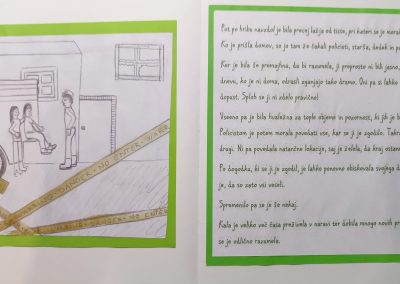 DANGER • NO ENTER • WARN
DANGER • NO ENTER
Pot po hribu navzdol je bila precej lažja od tiste, pri kateri se je morala
Ko je prišla domov, so jo tam že čakali policisti, starša, dedek in
Ker je bila še premajhna, da bi razumela, ji preprosto ni bilo jasno,
dnevu, ko je ni doma, odrasli zganjajo tako dramo. Oni pa si lahko
dopust. Sploh se ji ni zdelo pravično!
Vseeno pa je bila hvaležna za tople objeme in pozornost, ki jih je
Policistom je potem morala povedati vse, kar se ji je zgodilo. Takrat
drugi. Ni pa povedala natančne lokacije, saj je želela, da kraj ostane
Po dogodku, ki se ji je zgodil, je lahko ponovno obiskovala svojega
je, da so zato vsi veseli.
Spremenilo pa se je še nekaj.
Kala je veliko več časa preživela v naravi ter dobila mnogo novih
se je odlično razumela.